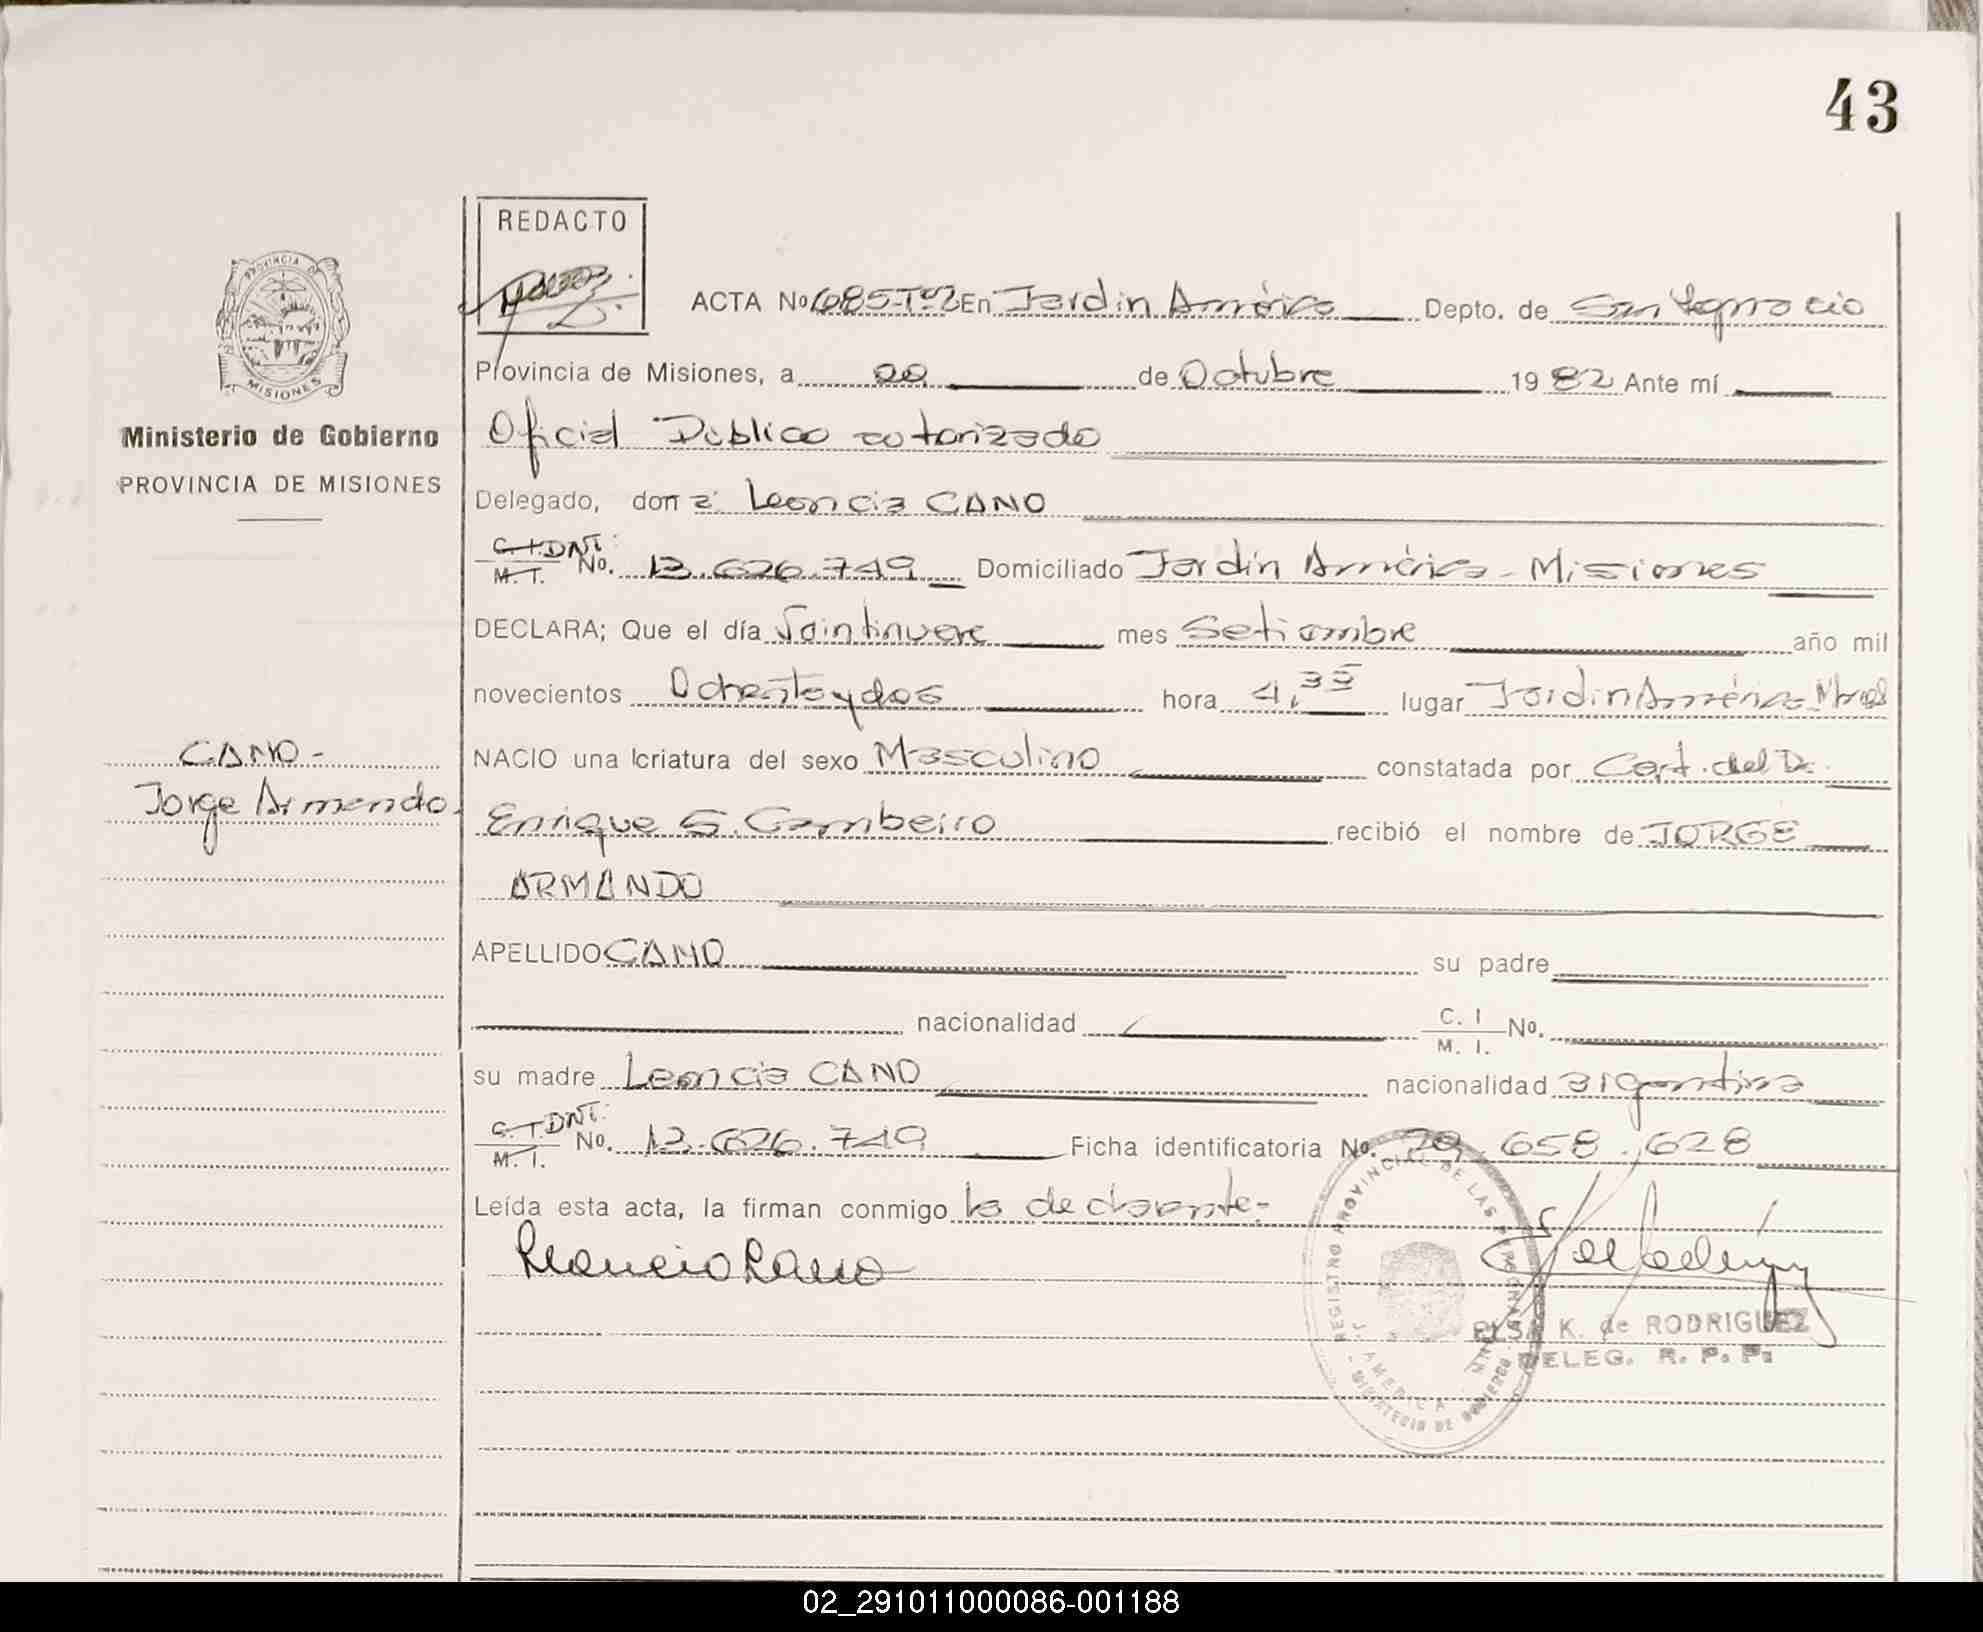 43
REDACTO
PROVINCIA DE
MISIONES
Ministerio de Gobierno
PROVINCIA DE MISIONES
ACTA No 685-Tº2 En Jardin América Depto. de San Ignacio
Provincia de Misiones, a 20 de Octubre 1982 Ante mí
Oficial Público autorizado
Delegado, don a: Leoncia CANO
C. I. DNI:
M. I. No. 13.626.749 Domiciliado Jardín América - Misiones
DECLARA; Que el día mes Setiembre año mil
novecientos Ochenta y dos hora 4,35 lugar Jardin América
CANO -
Jorge Armando
NACIO una criatura del sexo Masculino constatada por Cert. del Dr.
Enrique G. Gambeiro recibió el nombre de JORGE
ARMANDO
APELLIDO CANO su padre
nacionalidad C. I M. I. No.
su madre Leoncia CANO nacionalidad argentina
C. I. DNI:
M. I. No. 13.626.749 Ficha identificatoria No. 29.658.628
Leída esta acta, la firman conmigo la declarante-
Leoncia Cano
REGISTRO PROVINCIAL DE LAS PERSONAS
J. AMERICA
MINISTERIO DE GOBIERNO
ELSA K. de RODRIGUEZ
DELEG. R. P. P.
02_291011000086-001188